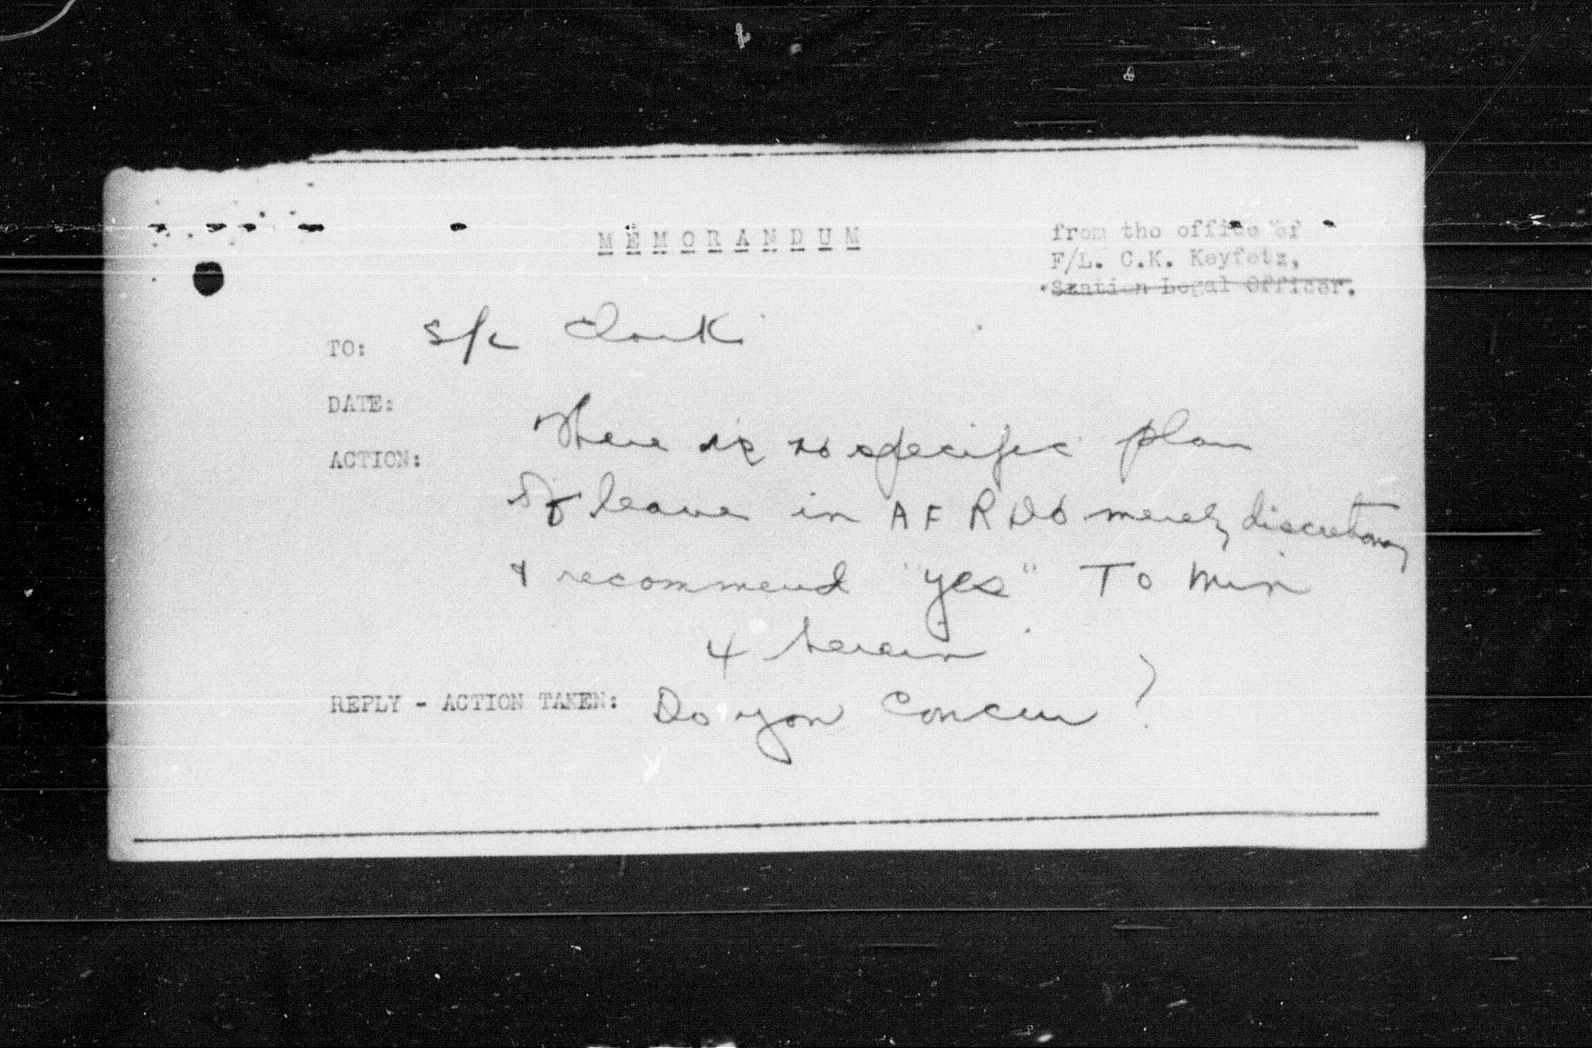 MEMORANDUM
from the office of
F/L. C.K. Keyfetz,
Station Legal Officer.
TO: S/L Clark
DATE:
ACTION: There is no specific plan
of leave in AFRO's merely discretionary
I recommend "yes" To Min
4 herein
REPLY - ACTION TAKEN: Do you Concur?